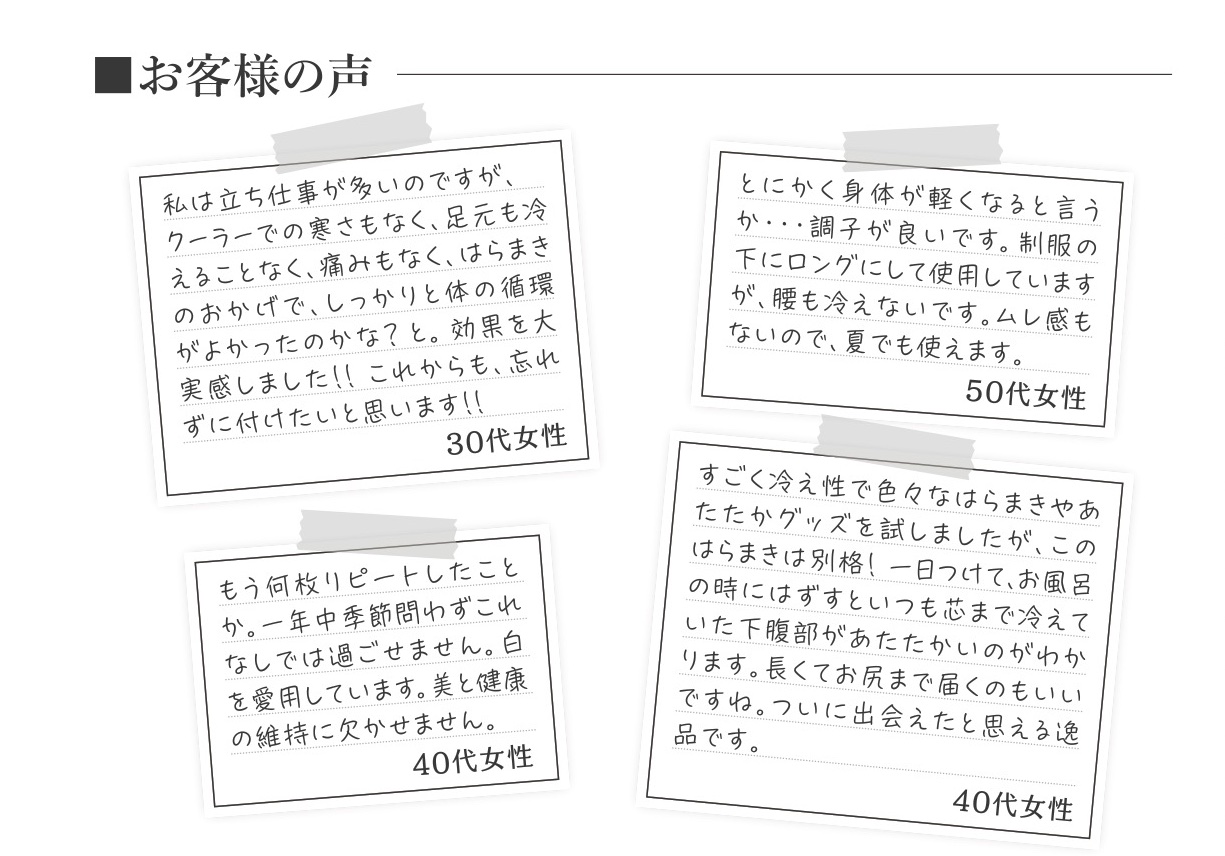 ■お客様の声
私は立ち仕事が多いのですが、
クーラーでの寒さもなく、足元も冷
えることなく、痛みもなく、はらまき
のおかげで、しっかりと体の循環
がよかったのかな？と。効果を大
実感しました!! これからも、忘れ
ずに付けたいと思います!!
30代女性
とにかく身体が軽くなると言う
か・・・調子が良いです。制服の
下にロングにして使用しています
が、腰も冷えないです。ムレ感も
ないので、夏でも使えます。
50代女性
もう何枚リピートしたこと
か。一年中季節問わずこれ
なしでは過ごせません。白
を愛用しています。美と健康
の維持に欠かせません。
40代女性
すごく冷え性で色々なはらまきやあ
たたかグッズを試しましたが、この
はらまきは別格！一日つけて、お風呂
の時にはずすといつも芯まで冷えて
いた下腹部があたたかいのがわか
ります。長くてお尻まで届くのもいい
ですね。ついに出会えたと思える逸
品です。
40代女性